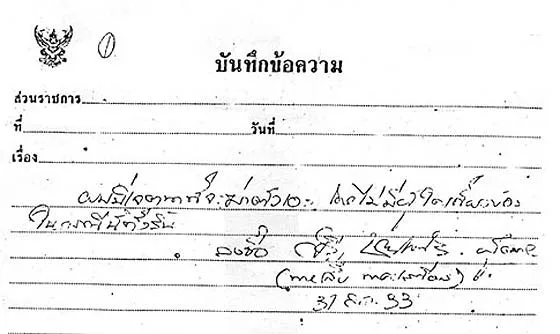 ①
บันทึกข้อความ
ส่วนราชการ
ที่ วันที่
เรื่อง
ผมมีเจตนาที่จะฆ่าตัวเอง โดยไม่มีผู้ใดเกี่ยวข้อง
ในกรณีนี้ทั้งสิ้น
ลงชื่อ สืบ
(นายสืบ นาคะเสถียร)
31 ส.ค. 33